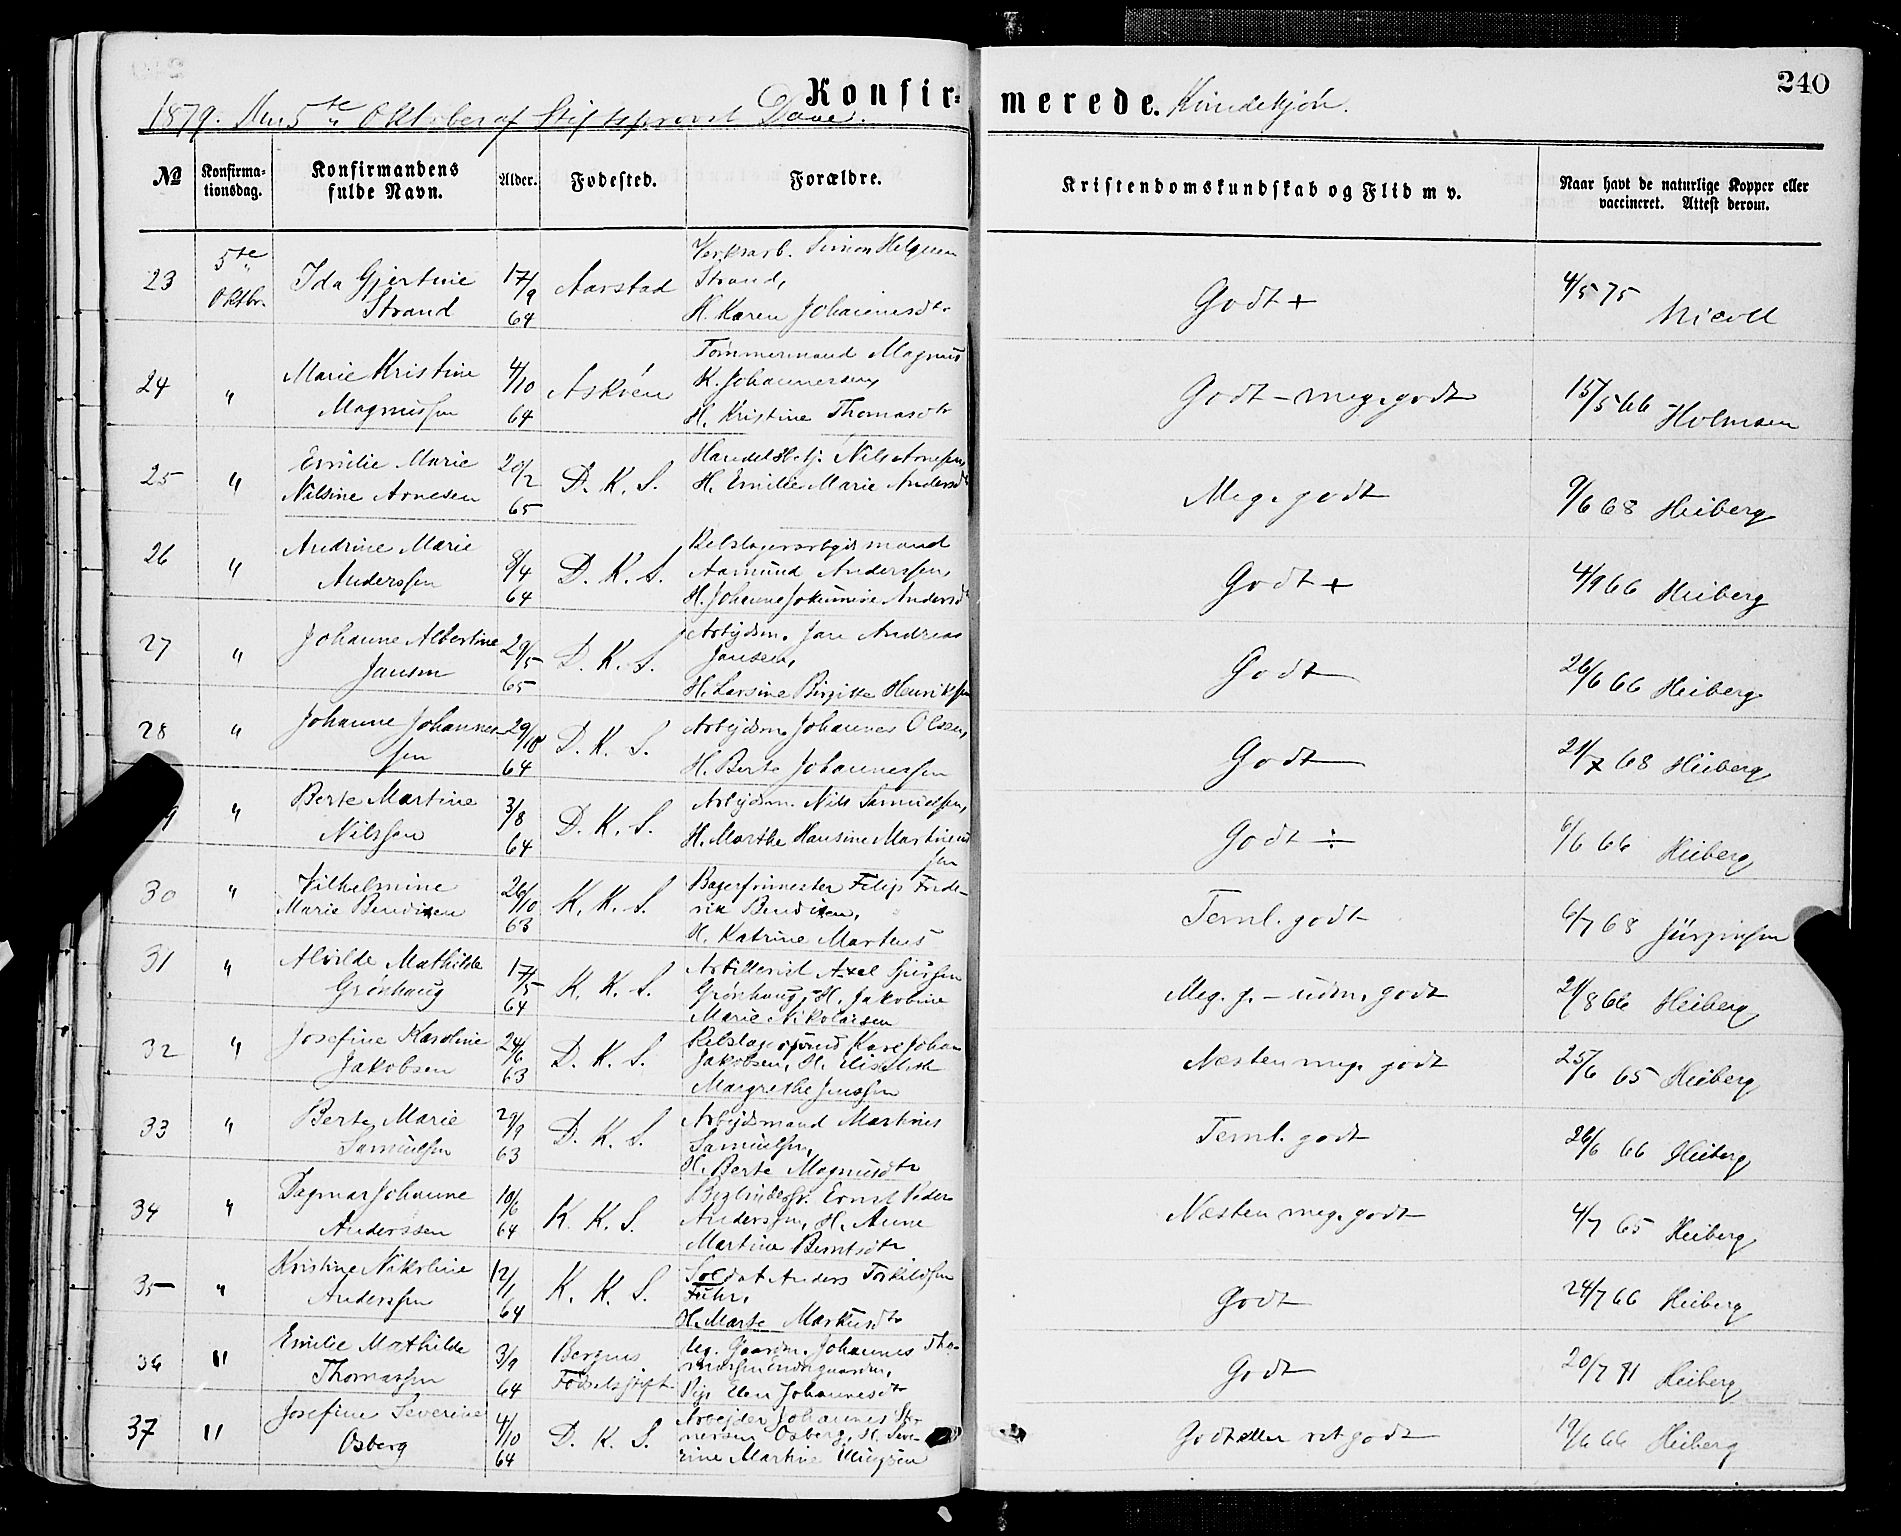 240
Konfir- merede. Kvindekjøn.
1879. Den 5te Oktober af Stiftsprovst Daae.
№ Konfirma-tionsdag. Konfirmandens fulde Navn. Alder. Fødested. Forældre. Kristendomskundskab og Flid m v. Naar havt de naturlige Kopper eller vaccineret. Attest derom.
23 5te Oktbr. Ida Gjertine Strand 17/9 64 Aarstad Simon Helgesen Strand, H. Karen Johannesdtr Godt + 4/5 75 Nicoll
24 " Marie Kristine Magnussen 4/10 64 Askøen Tømmermand Magnus K. Johannesen, H. Kristine Thomasdtr Godt - meg. godt 15/5 66 Holmsen
25 " Emilie Marie Nilsine Arnesen 20/2 65 D. K. S. Nils Arnesen, H. Emilie Marie Andersdtr Meg. godt 9/6 68 Heiberg
26 " Andrine Marie Anderssen 8/4 64 D. K. S. Reislagerarbeidsmand Aamund Anderssen, H. Johanne Andersdtr Godt + 4/9 66 Heiberg
27 " Johanne Albertine Jansen 29/5 65 D. K. S. Arbejdsm. Jan Andreas Jansen, H. Larsine Birgitte Henriksen Godt 26/6 66 Heiberg
28 " Johanne Johannessen 29/10 64 D. K. S. Arbejdsm. Johannes Olsen, H. Berte Johannessen Godt 21/7 68 Heiberg
" Berte Martine Nilssen 3/8 64 D. K. S. Arbejdsm. Nils Samuelsen, H. Marthe Hansine Martinussen Godt ÷ 6/6 66 Heiberg
30 " Vilhelmine Marie Bendixen 26/10 63 K. K. S. Filip Frederik Bendixen, H. Katrine Martens Teml. godt 6/7 68 Jürgensen
31 " Alvilde Mathilde Grønhaug 17/5 64 K. K. S. Artillerist Axel Grønhaug, H. Jakobine Marie Nikolaisen Meg. g. - udm. godt 21/8 66 Heiberg
32 " Josefine Karoline Jakobsen 24/6 63 D. K. S. Karl Johan Jakobsen, H. Elisabeth Margrethe Jenssen Næsten meg. godt 25/6 65 Heiberg
33 " Berte Marie Samuelsen 29/9 63 D. K. S. Arbejdsmand Martines Samuelsen, H. Berte Magnusdtr Teml. godt 26/6 66 Heiberg
34 " Dagmar Johanne Anderssen 10/6 64 K. K. S. Ernst Peder Anderssen, H. Anne Martine Berntsdtr Næsten meg. godt 4/7 65 Heiberg
35 " Kristine Nikoline Anderssen 12/1 64 K. K. S. Soldat Anders Torkildsen Fuhr, H. Marte Markusdtr Godt 24/7 66 Heiberg
36 " Emilie Mathilde Thomassen 3/9 64 Bergens Fødselsstift Ug. Gaardm. Johannes Thomassen Pige Elen Johannesdtr Godt 20/7 71 Heiberg
37 " Josefine Severine Osberg 4/10 64 D. K. S. Arbejder Johannes Osberg, H. Severine Martine Godt eller ret godt 19/6 66 Heiberg